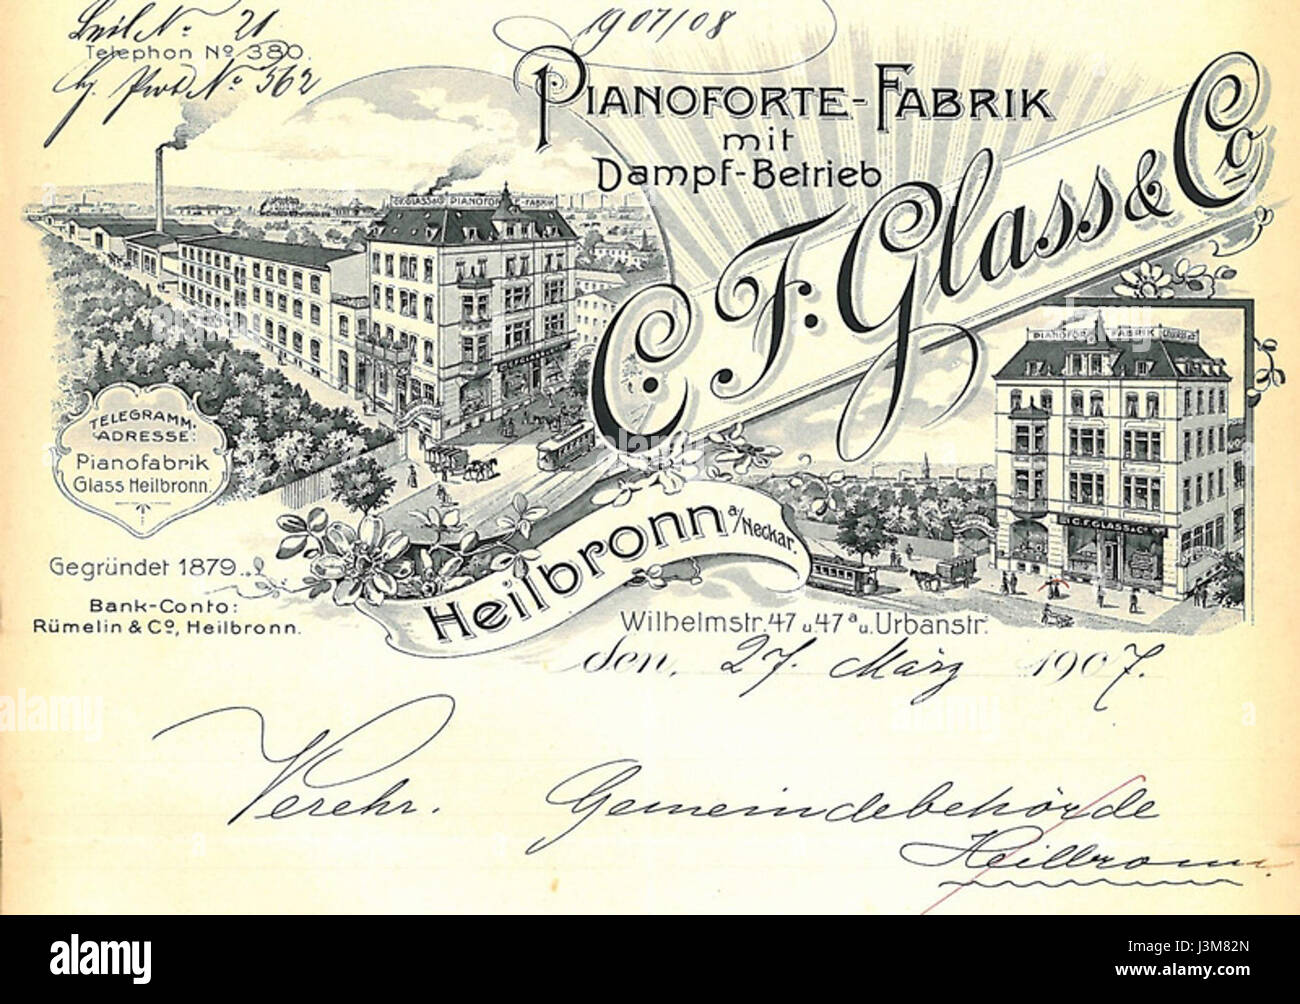 Beil No 21
1907/08
Telephon No 380.
Prot No 362
PIANOFORTE-FABRIK
mit
Dampf-Betrieb
C. F. Glass & Co
C.F. GLASS & Co PIANOFORTE-FABRIK
PIANOFORTE FABRIK
C.F. GLASS & Co
TELEGRAMM-
ADRESSE:
Pianofabrik
Glass Heilbronn.
Gegründet 1879.
Bank-Conto:
Rümelin & Co, Heilbronn.
Heilbronn a/Neckar.
Wilhelmstr. 47 u. 47a u. Urbanstr.
den, 27. März 1907.
Verehr. Gemeindebehörde
Heilbronn.
alamy
alamy
a
a
alamy
Image ID: J3M82N
www.alamy.com